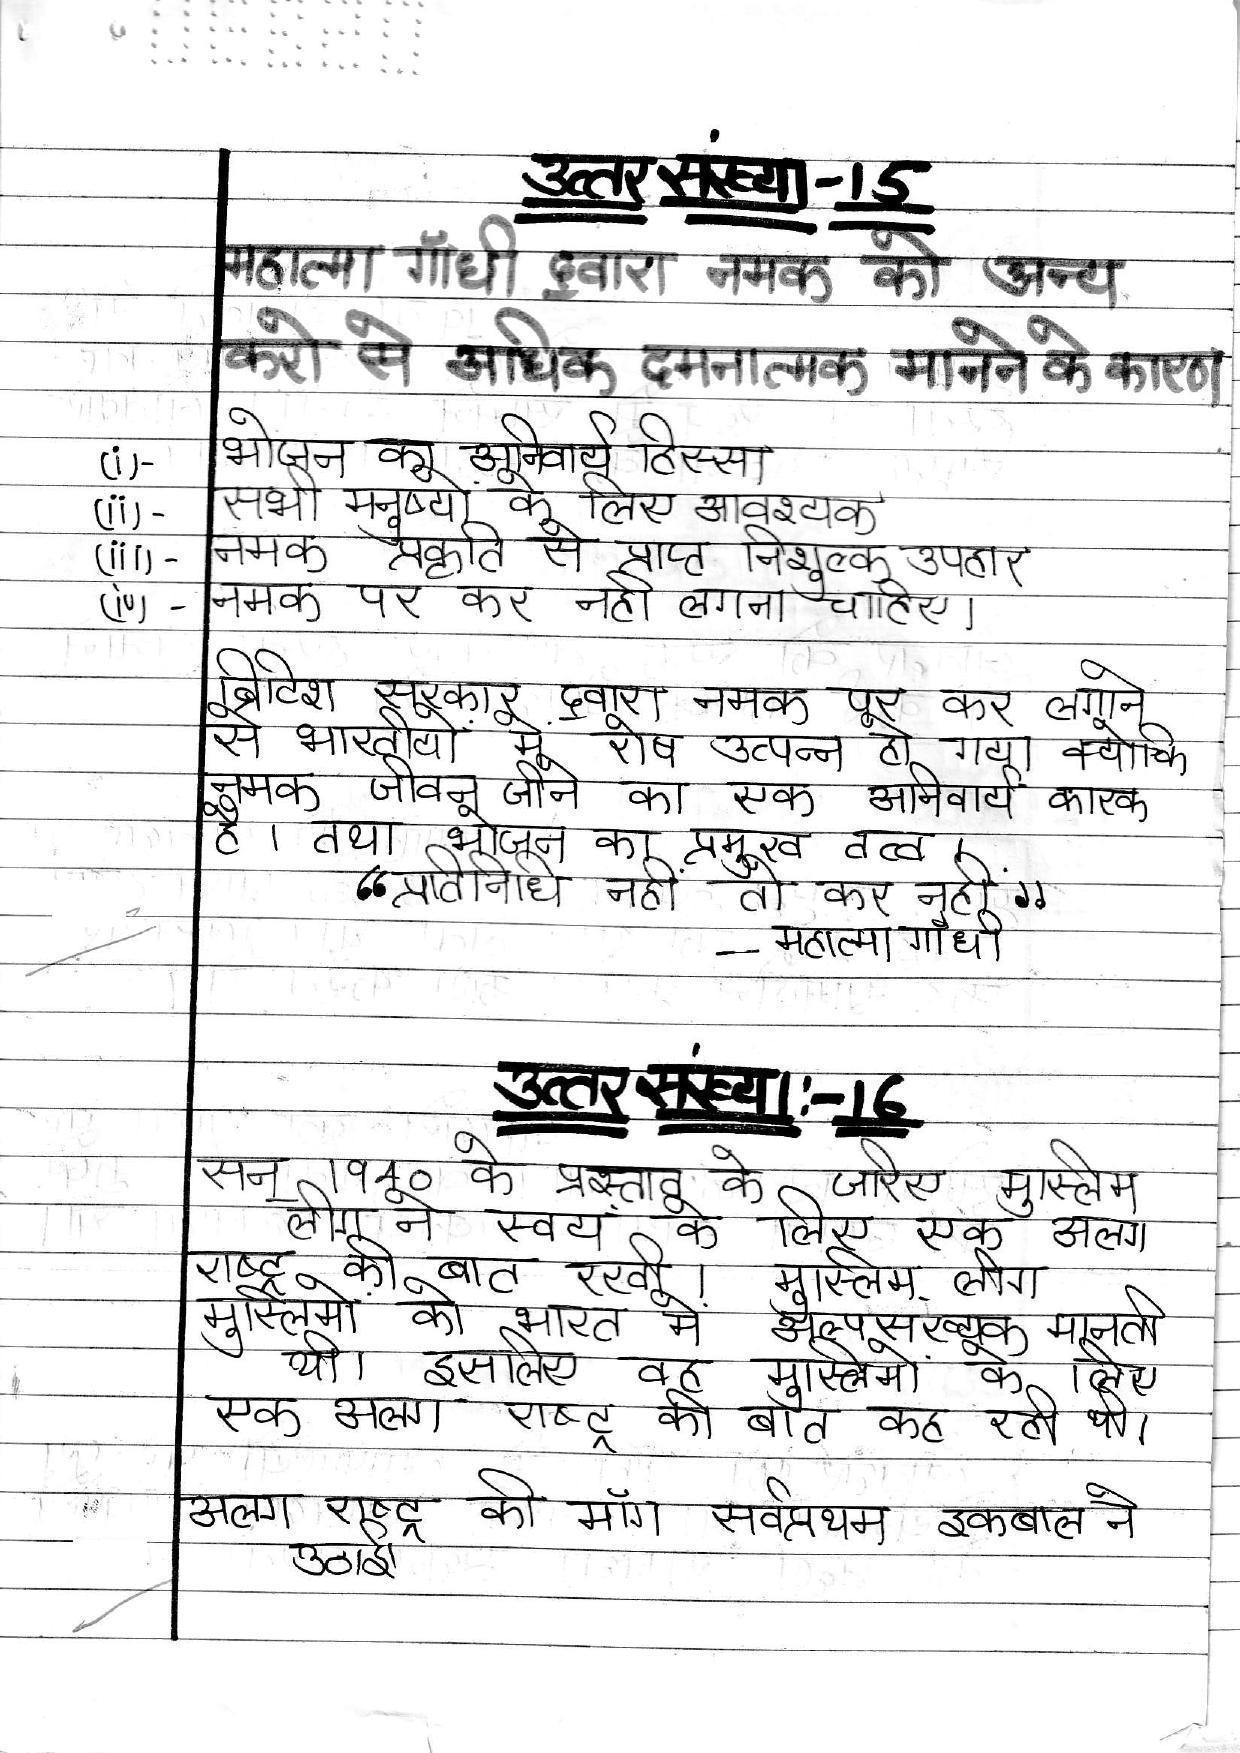 उत्तर संख्या - 15
महात्मा गाँधी द्वारा नमक को अन्य
करो से अधिक दमनात्मक मानने के कारण
(i)- भोजन का अनिवार्य हिस्सा
(ii)- सभी मनुष्यों के लिए आवश्यक
(iii)- नमक प्रकृति से प्राप्त निशुल्क उपहार
(iv)- नमक पर कर नही लगना चाहिए।
ब्रिटिश सरकार द्वारा नमक पर कर लगाने
से भारतीयों में रोष उत्पन्न हो गया क्योंकि
नमक जीवन जीने का एक अनिवार्य कारक
है। तथा भोजन का प्रमुख तत्व।
“प्रतिनिधि नहीं तो कर नहीं”
— महात्मा गाँधी
उत्तर संख्या:- 16
सन् 1940 के प्रस्ताव के जरिए मुस्लिम
लीग ने स्वयं के लिए एक अलग
राष्ट्र की बात रखी। मुस्लिम लीग
मुस्लिमों को भारत में अल्पसंख्यक मानती
थी। इसलिए वह मुस्लिमों के लिए
एक अलग राष्ट्र की बात कह रही थी।
अलग राष्ट्र की माँग सर्वप्रथम इकबाल ने
उठाई